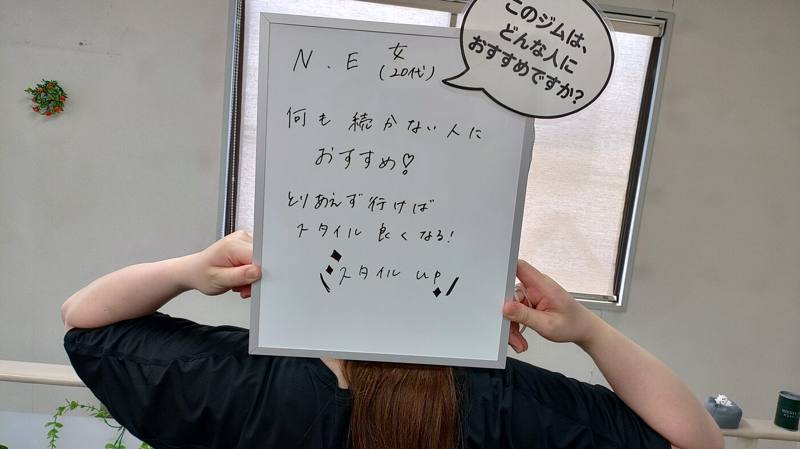 このジムは、
どんな人に
おすすめですか?
N.E 女
(20代)
何も続かない人に
おすすめ♡
とりあえず行けば
スタイル良くなる!
\スタイルup/